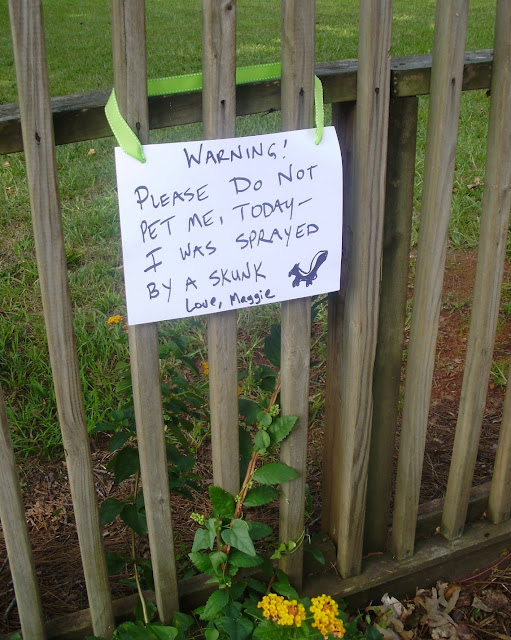 WARNING!
PLEASE DO NOT
PET ME, TODAY-
I WAS SPRAYED
BY A SKUNK
Love, Maggie